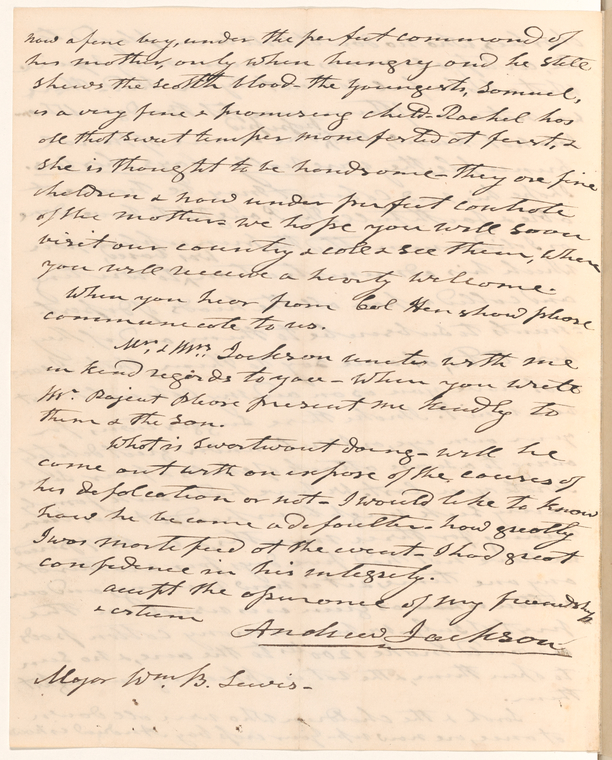 now a fine boy, under the perfect command of
his mother, only when hungry and he still
shews the scotth blood - the youngest, Samuel,
is a very fine & promising child - Rachel has
all that sweet temper manifested at first, &
she is thought to be handsome - they are fine
children & now under perfect controle
of the mother - we hope you will soon
visit our country & call & see them, where
you will receive a hearty welcome.
When you hear from Col Henshow please
communicate to us.
Mr. & Mrs. Jackson unites with me
in kind regards to you - When you write
Mr. Pajeot please present me kindly to
them & the son.
What is Swartwout doing - will he
come out with an expose of the causes of
his defalcation or not - I would like to know
how he became a defaulter - how greatly
I was mortified at the event - I had great
confidence in his integrety.
accept the assurance of my friendship
& esteem
Andrew Jackson
Major Wm. B. Lewis -